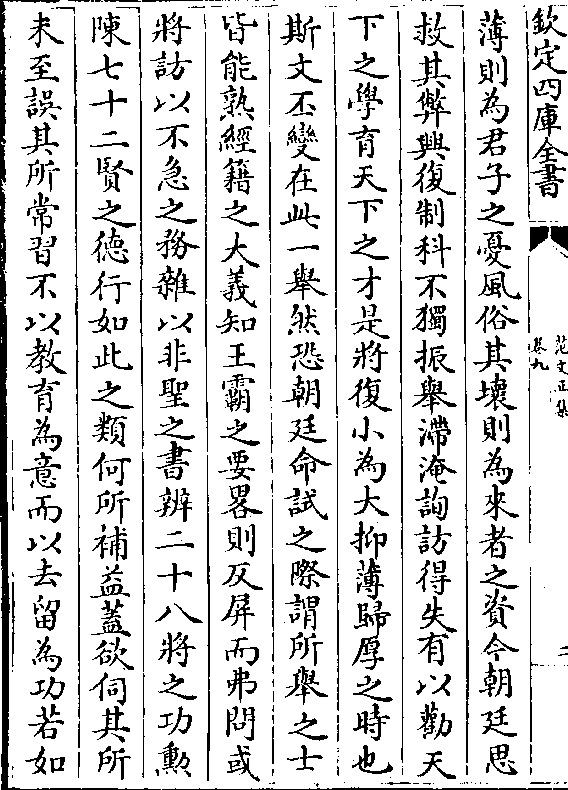 欽定四庫全書
范文正集
卷九
二
薄則為君子之憂風俗其壞則為來者之資今朝廷思
救其弊興復制科不獨振舉滯淹詢訪得失有以勸天
下之學育天下之才是將復小為大抑薄歸厚之時也
斯文丕變在此一舉然恐朝廷命試之際謂所舉之士
皆能熟經籍之大義知王霸之要畧則反屏而弗問或
將訪以不急之務雜以非聖之書辨二十八將之功勲
陳七十二賢之德行如此之類何所補益蓋欲伺其所
未至誤其所常習不以教育為意而以去留為功若如